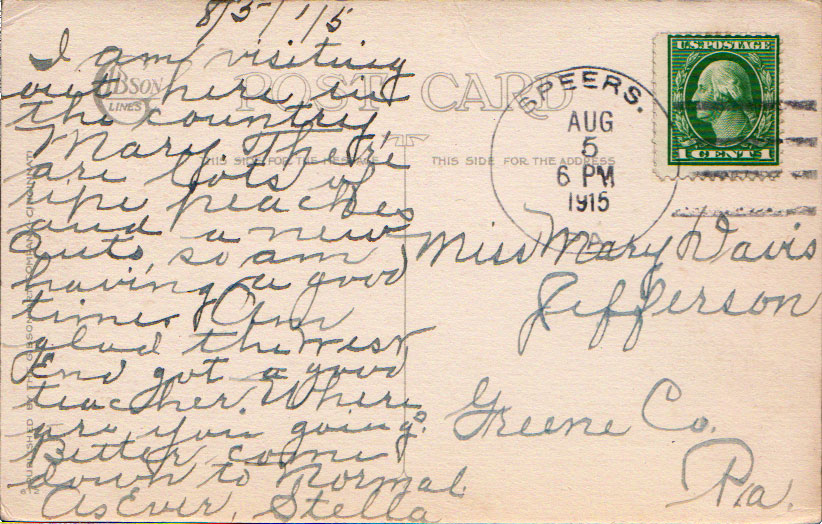 8/5/15
I am visiting
out here in
the country,
Mary. There
are lots of
ripe peaches
and a new
auto, so am
having a good
time. Am
glad the West
End got a good
teacher. Where
are you going?
Better come
down to Normal
As Ever, Stella
GIBSON
LINES
POST CARD
THIS SIDE FOR THE MESSAGE
THIS SIDE FOR THE ADDRESS
SPEERS.
AUG
5
6 PM
1915
PA
U.S. POSTAGE
1 CENT 1
Miss Mary Davis
Jefferson
Greene Co.
Pa.